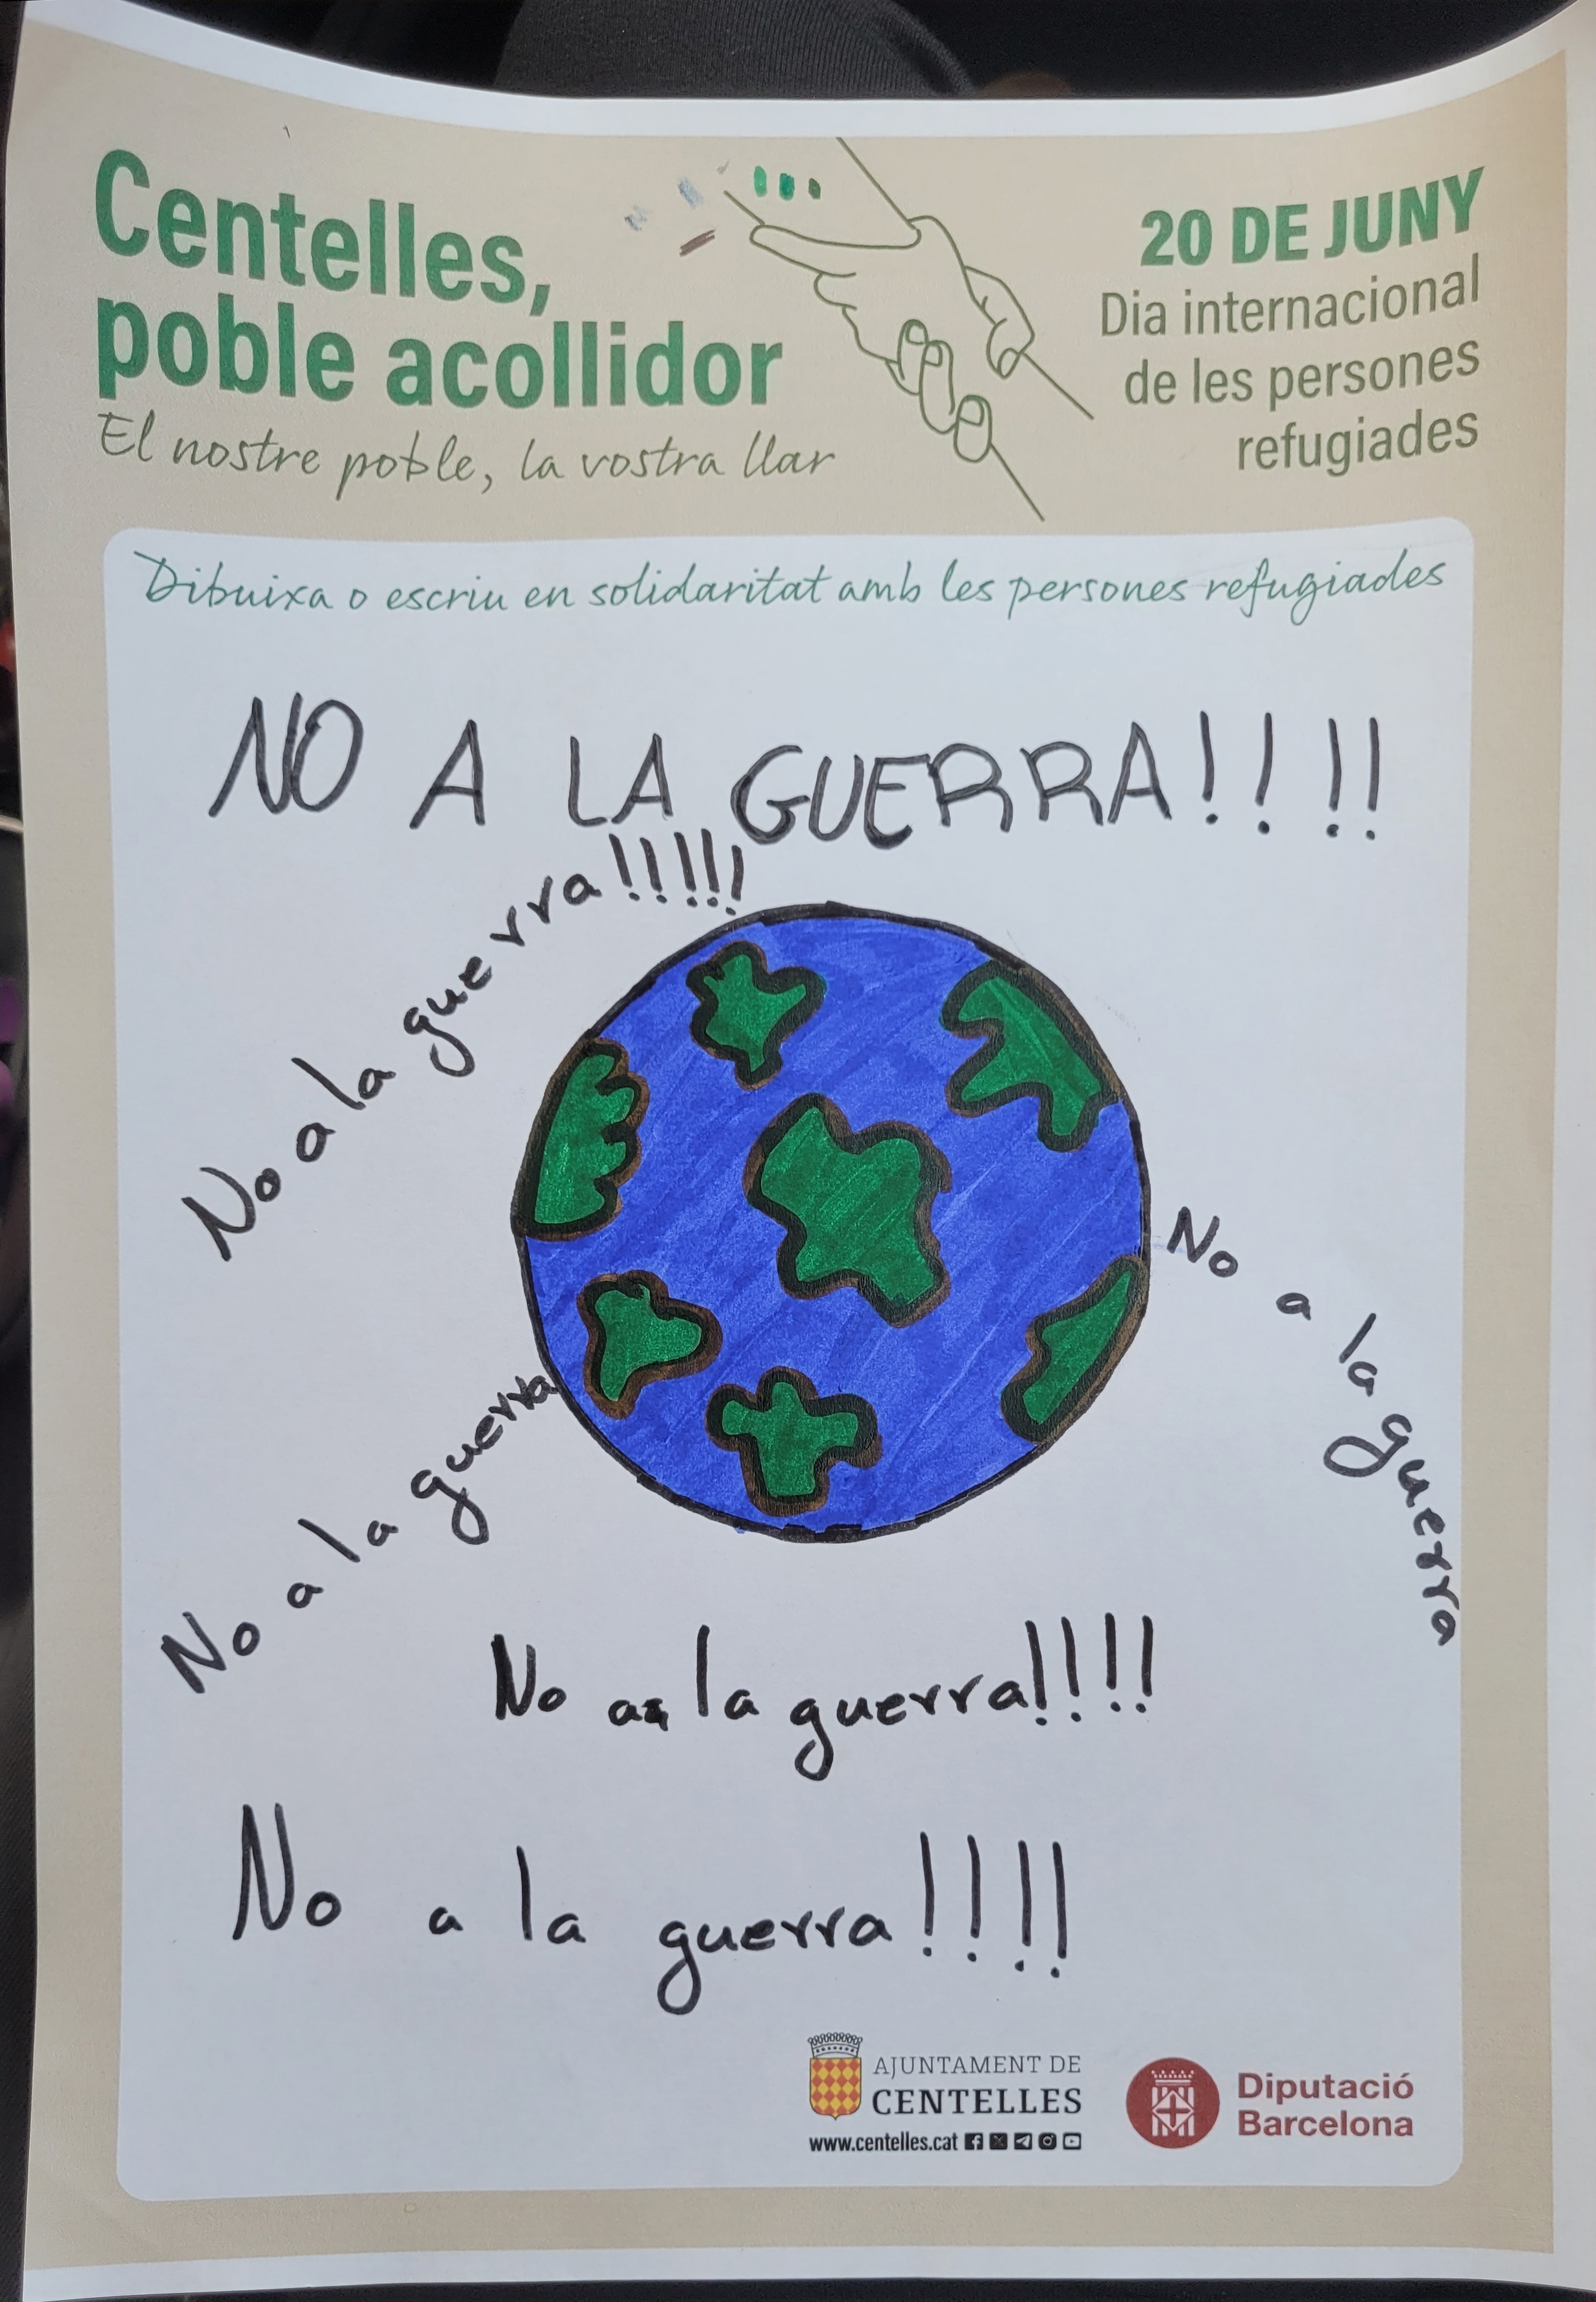 Centelles,
poble acollidor
El nostre poble, la vostra llar
20 DE JUNY
Dia internacional
de les persones
refugiades
Dibuixa o escriu en solidaritat amb les persones refugiades
NO A LA GUERRA!!!!
No a la guerra!!!!!
No a la guerra
No a la guerra
No a la guerra!!!!
No a la guerra!!!!
AJUNTAMENT DE
CENTELLES
www.centelles.cat
Diputació
Barcelona